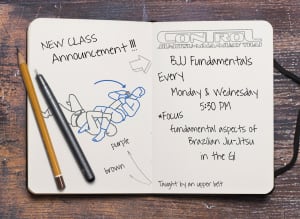 NEW CLASS
Announcement !!!
purple
brown
CONTROL
BJJ Fundamentals
Every
Monday & Wednesday
5:30 PM
*Focus
fundamental aspects of
Brazilian Jiu-Jitsu
in the Gi
Taught by an upper belt